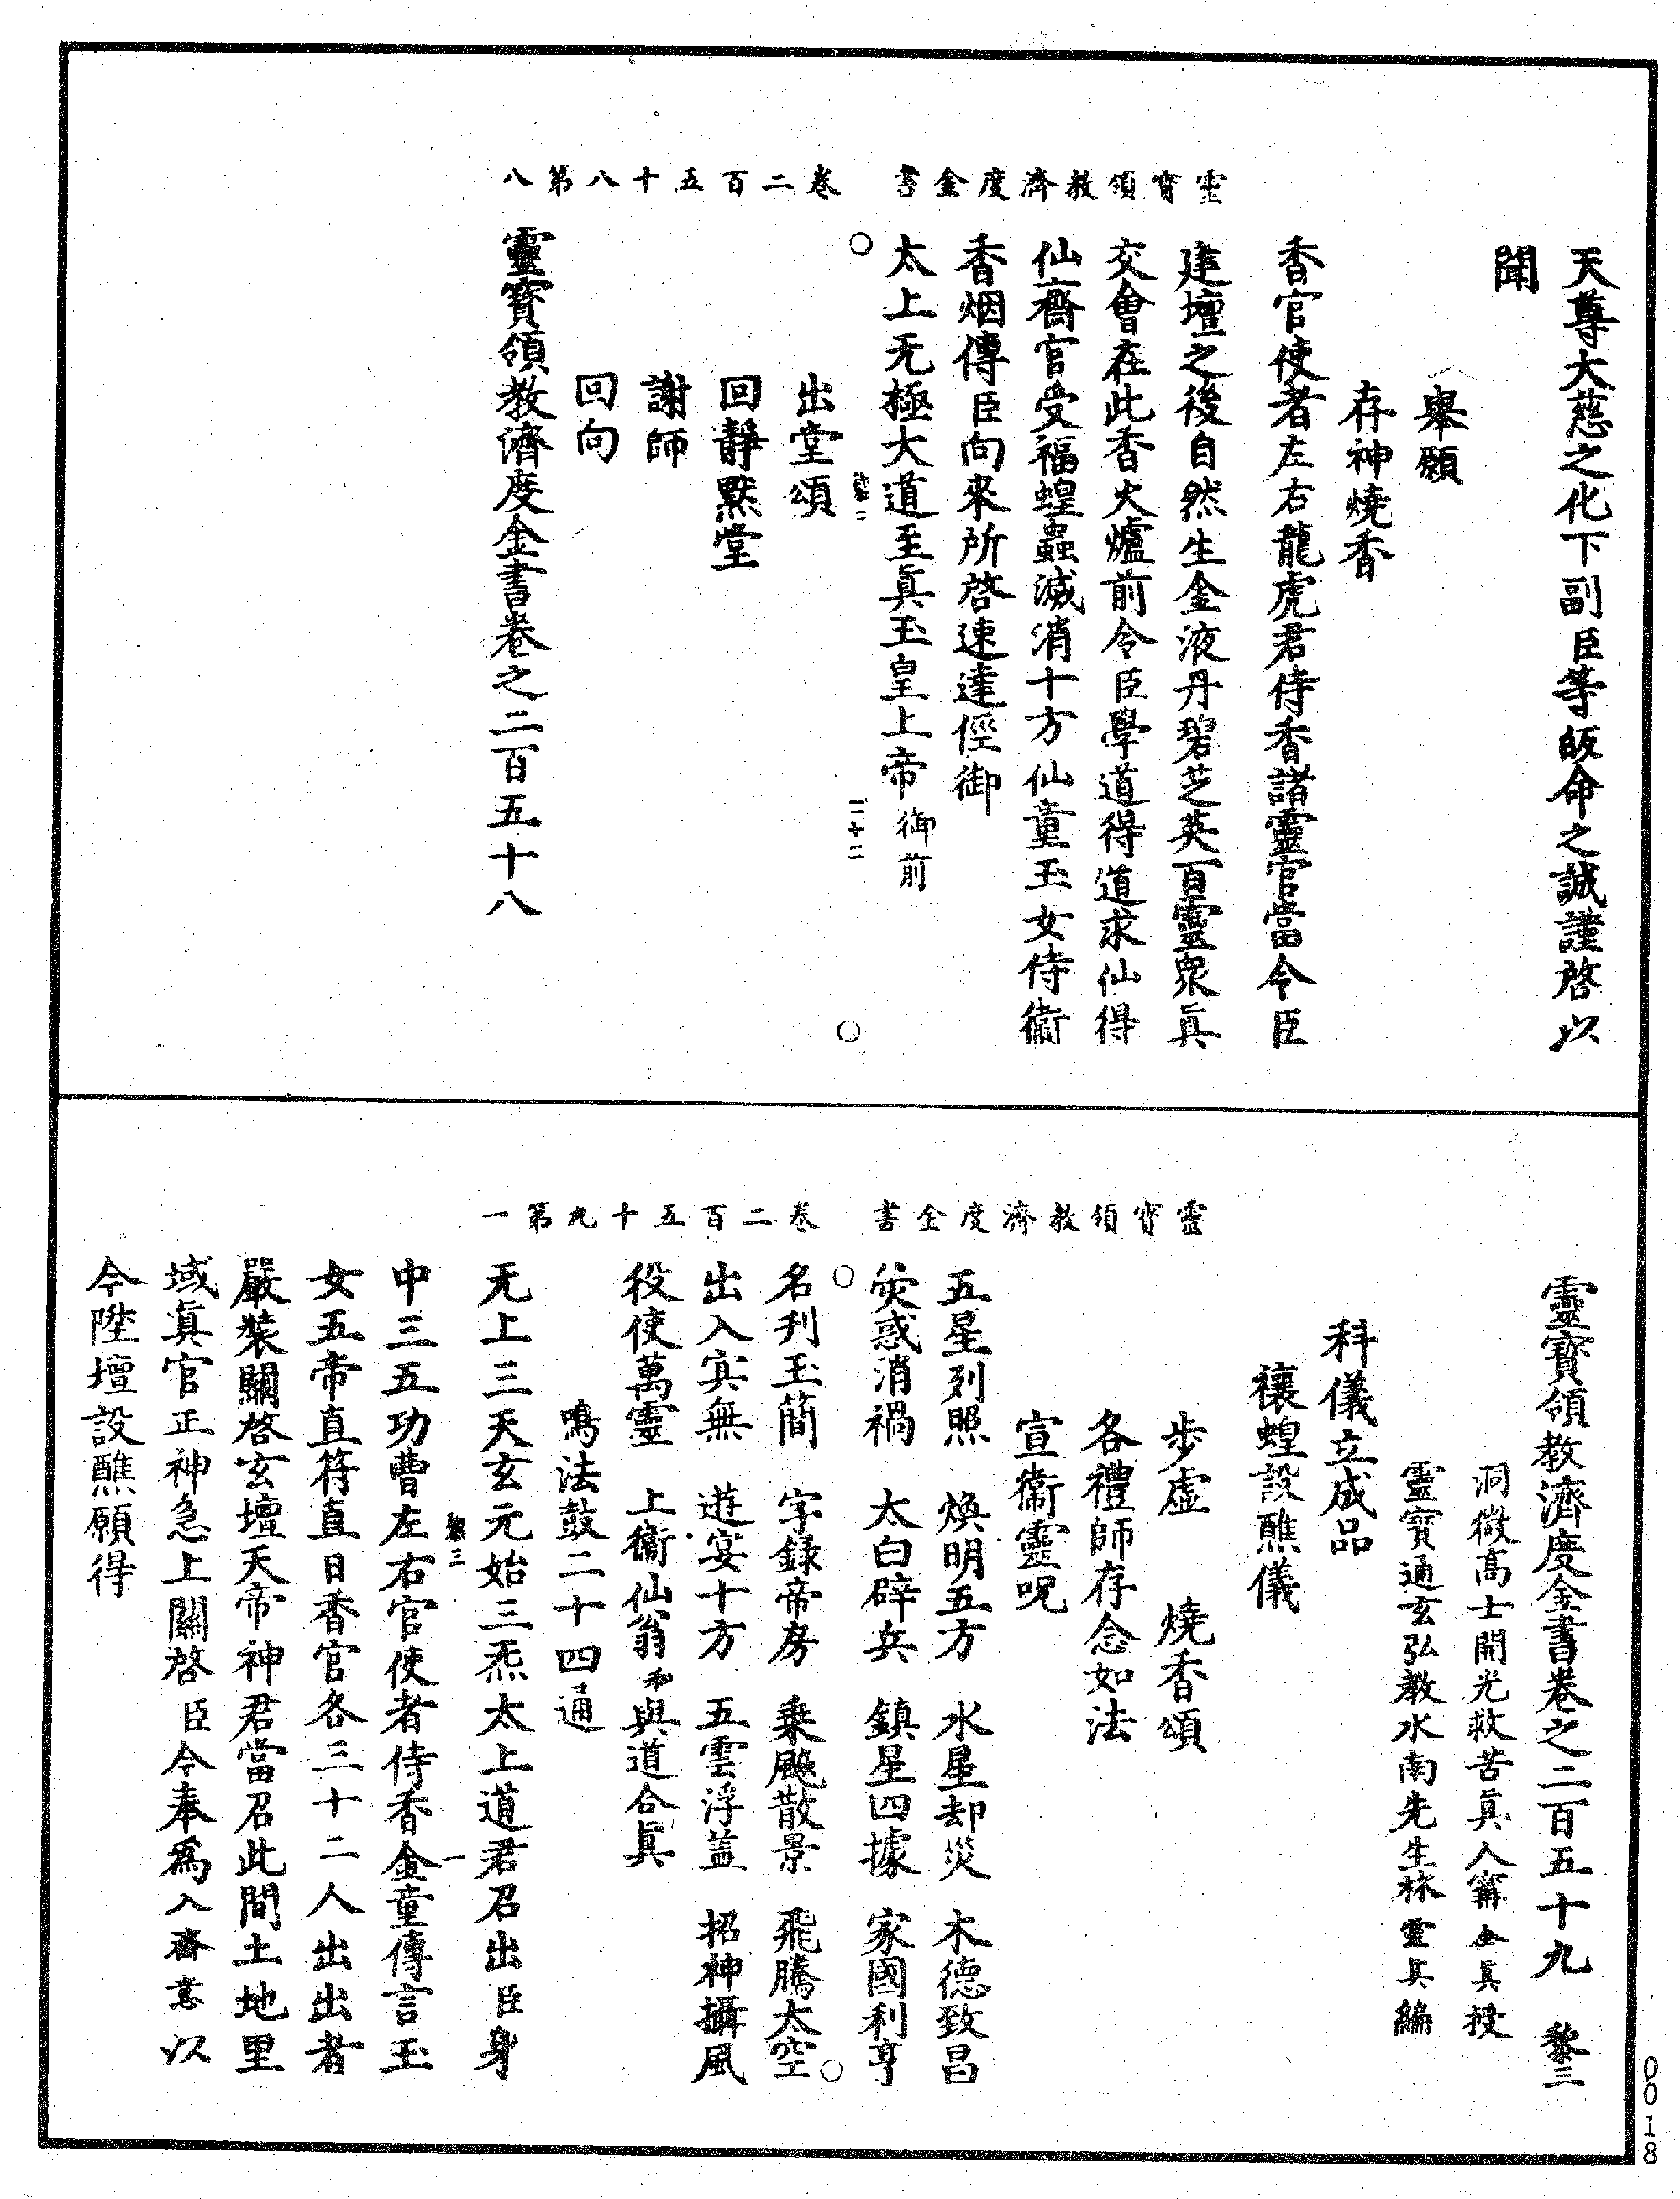 靈寶領教濟度金書　卷二百五十八第八
天尊大慈之化下副臣等皈命之誠謹啓以
聞
舉願
存神燒香
香官使者左右龍虎君侍香諸靈官當令臣
建壇之後自然生金液丹碧芝英百靈衆真
交會在此香火爐前令臣學道得道求仙得
仙齋官受福蝗蟲滅消十方仙童玉女侍衞
香烟傳臣向來所啓速達徑御
太上无極大道至真玉皇上帝御前
二十二
出堂頌
回靜默堂
謝師
回向
靈寶領教濟度金書卷之二百五十八
靈寶領教濟度金書　卷二百五十九第一
靈寶領教濟度金書卷之二百五十九　黎三
洞微高士開光救苦真人甯全真授
靈寶通玄弘教水南先生林靈真編
科儀立成品
禳蝗設醮儀
步虛　燒香頌
各禮師存念如法
宣衞靈呪
五星列照　煥明五方　水星却災　木德致昌
熒惑消禍　太白辟兵　鎮星四據　家國利亨
名刋玉簡　字録帝房　乗飈散景　飛騰太空
出入㝠無　遊宴十方　五雲浮盖　招神攝風
役使萬靈　上衞仙翁和與道合真
鳴法鼓二十四通
无上三天玄元始三炁太上道君召出臣身
黎三　一
中三五功曹左右官使者侍香金童傳言玉
女五帝直符直日香官各三十二人出出者
嚴裝關啓玄壇天帝神君當召此間土地里
域真官正神急上關啓臣今奉爲入齋意以
今陞壇設醮願得
0018